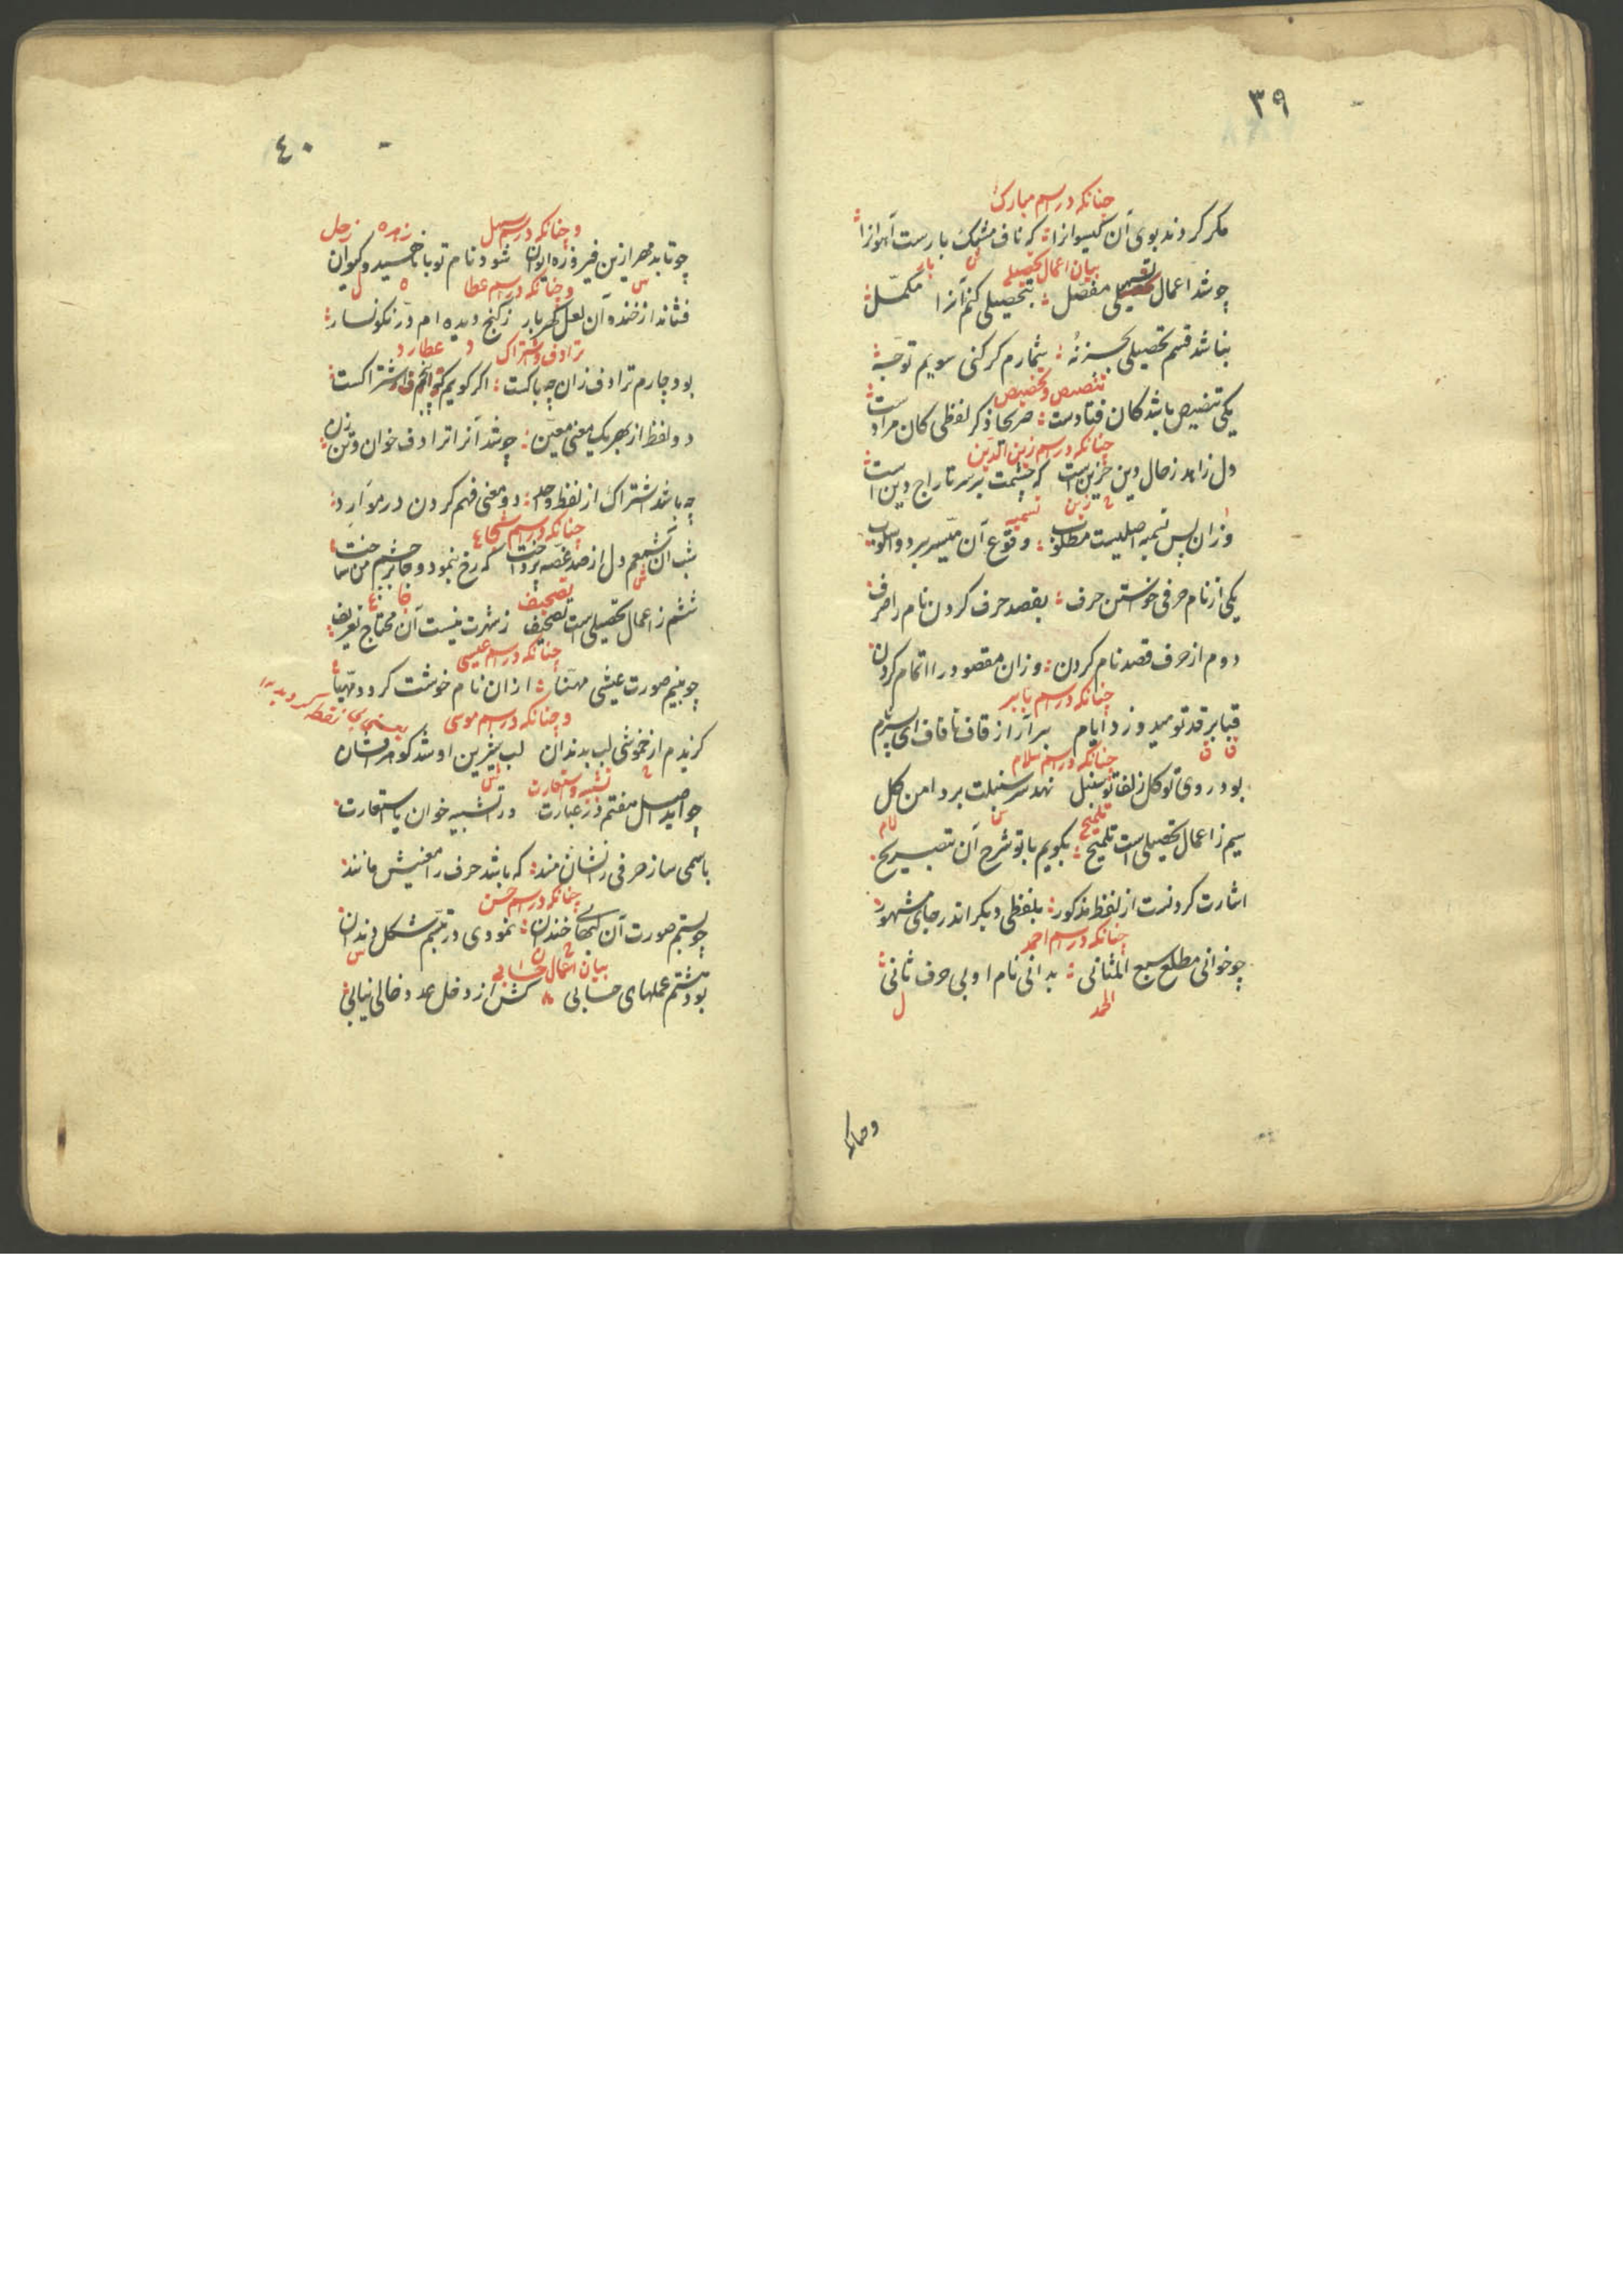 ۳۹
چنانکه در اسم مبارک
مکر کردند بوی آن کیسوانرا که ناف مشک بارست آهوانرا
بیان اعمال تحصیلی
چو شد اعمال مفصل بتحصیلی کنم آنرا مکمل
نباشد قسم تحصیلی بجز نُه شمارم کر کنی سویم توجه
تنصیص و تخصیص
یکی تنصیص باشد کان فتادست صریحا ذکر لفظی کان مرادست
چنانکه در اسم زین الدین
دل زاهد ز حال دین حزین است که چشمت بر سر تاراج دین است
زین تسمیه
وزان پس تسمیه اصلیست مطلوب وقوع آن میسر بر دو اسلوب
یکی از نام حرفی خواستن حرف بقصد حرف کردن نام را صرف
دوم از حرف قصد نام کردن وزان مقصود را اتمام کردن
چنانکه در اسم بابر
قبا بر قد تو میدوزد ایام برآر از قاف تا قاف ای پسر نام
ق ق
چنانکه در اسم سلام
بود روی تو کل زلف تو سنبل نهد سر سنبلت بر دامن کل
تلمیح لام
سیم ز اعمال تحصیلی است تلمیح بکویم با تو شرح آن بتصریح
اشارت کردنست از لفظ مذکور بلفظی دیکر اندر جای مشهور
چنانکه در اسم احمد
چو خوانی مطلع سبع المثانی بدانی نام او بی حرف ثانی
الحمد ل
٤٠
و چنانکه در اسم زهره زحل
چو تابد مهر ازین فیروزه ایوان شود نام تو با ناهید و کیوان
و چنانکه در اسم عطا
فشاند از خنده آن لعل کهربار ز کنج دیده ام در نکونسار
ترادف و اشتراک عطارد
بود چارم ترادف زان چه باکست اکر کویم که پنجم اشتراکست
دو لفظ از بهر یک معنی معین چو شد آنرا ترادف خوان
چه باشد اشتراک از لفظ واحد دو معنی فهم کردن در موارد
چنانکه در اسم شجاع
شب آن شمعم دل از صد غصه پرداخت که رخ بنمود و جا بر چشم من ساخت
تصحیف
ششم ز اعمال تحصیلی است تصحیف ز شهرت نیست آن محتاج تعریف
چنانکه در اسم عیسی
چو بینم صورت عیشی مهنا ازان نام خوشت کردد مهیا
و چنانکه در اسم موسی
کزیدم از خموشی لب بدندان لب شیرین او شد کوهر افشان
تشبیه و استعارت
چو آید اصل هفتم در عبارت ورا تشبیه خوان یا استعارت
باسمی ساز حرفی را نشان مند که باشد حرف را معنیش مانند
چنانکه در اسم حسن
چو بستم صورت آن لبهای خندان نمودی در تبسم شکل دندان
بیان اعمال حسابی
بود هشتم عملهای حسابی کش از دخل عدد خالی نیابی